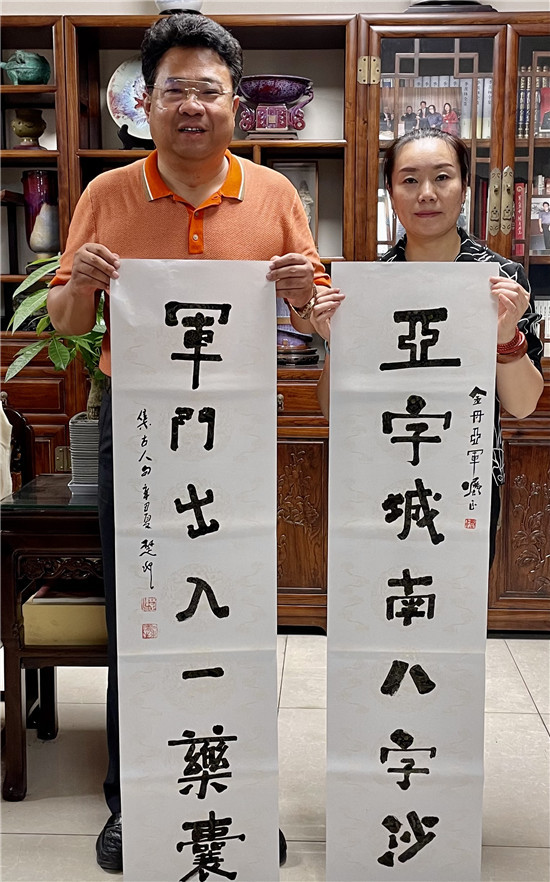 金丹亞軍正
亞字城南八字沙
軍門出入一藥囊
集古人句 辛丑夏 楚